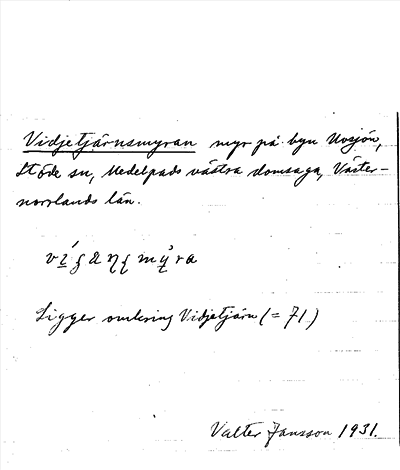 Vidjetjärnsmyran myr på byn Ussjön,
Stöde sn, Medelpads västra domsaga, Väster-
norrlands län.
Ligger omkring Vidjetjärn (= 71)
Valter Jansson 1931.